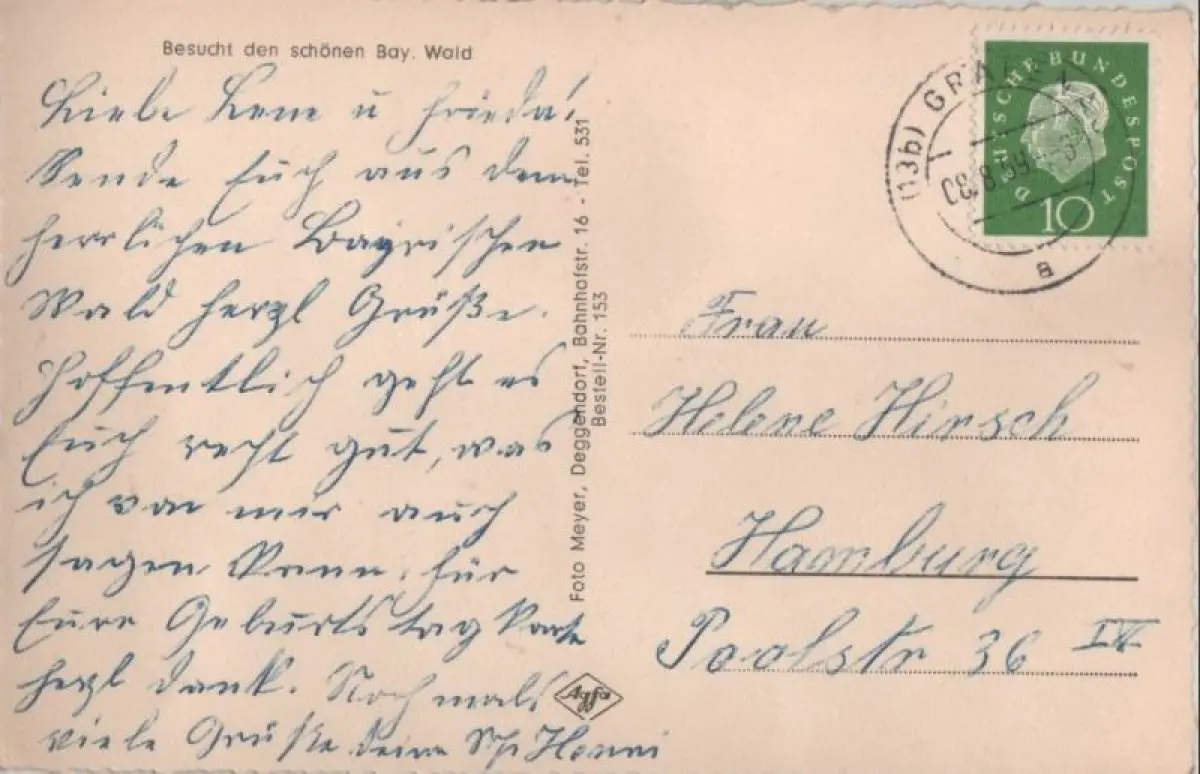 Besucht den schönen Bay. Wald
Liebe Lene u Frieda!
Sende Euch aus dem
herrlichen Bayrischen
Wald herzl Grüße.
Hoffentlich geht es
Euch recht gut, was
ich von mir auch
sagen kann. für
Eure Geburtstagkarte
herzl dank. Nochmals
viele Grüße deine Henni
Foto Meyer, Deggendorf, Bahnhofstr. 16 - Tel. 531
Bestell-Nr. 153
Agfa
(13b) GRAF
8.59
a
DEUTSCHE BUNDESPOST
10
Frau
Helene Hirsch
Hamburg
Poolstr 36 IV